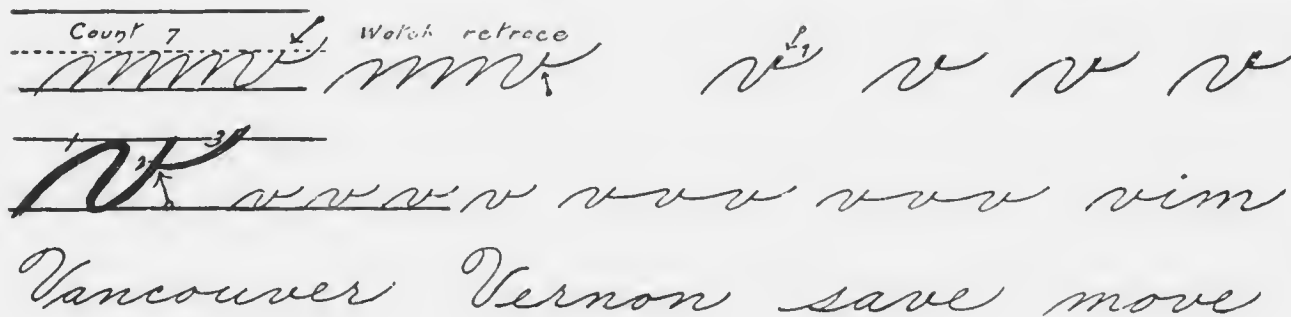 Count 7 Watch retrace
mmv mmv v 1 v v v
1 2 3 v v v v v vvv vvv vim
Vancouver Vernon save move